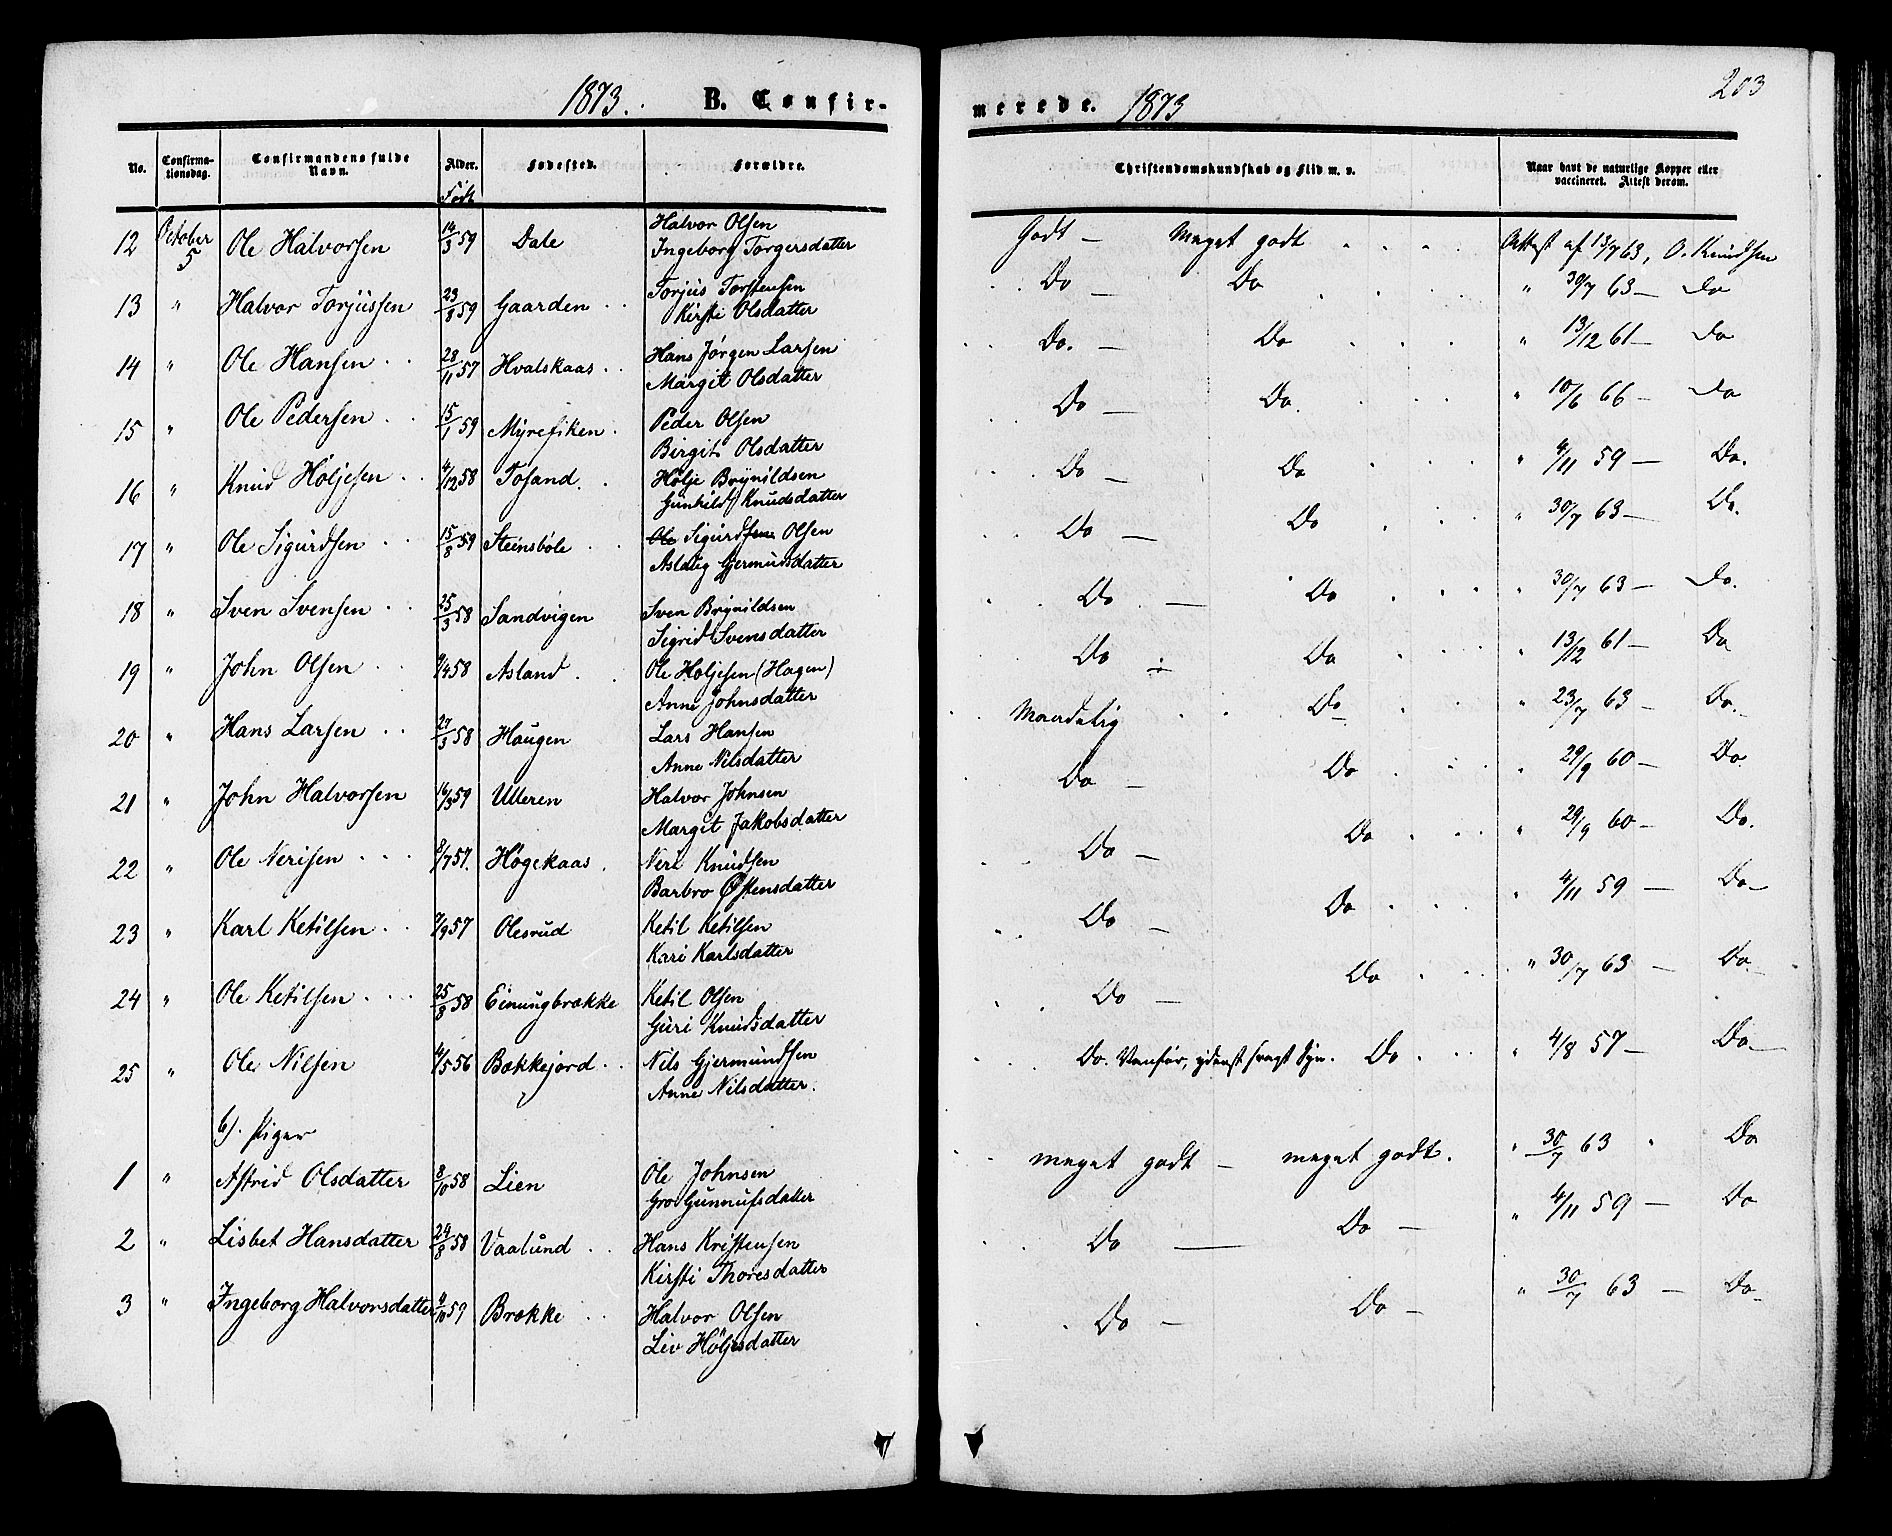 1873. B. Confirmerede. 1873
203
No. Confirmationsdag. Confirmandens fulde Navn. Alder. Født Fødested. Forældre. Christendomskundskab og Flid m. v. Naar havt de naturlige Kopper eller vaccineret. Attest derom.
12 October 5 Ole Halvorsen 14/3 59 Dale Halvor Olsen Ingeborg Torgersdatter Godt — Meget godt Attest af 13/7 63, O. Knudsen
13 " Halvor Torjussen 23/3 59 Gaarden Torjus Torstensen Kirsti Olsdatter Do — Do " 30/7 63 — Do
14 " Ole Hansen 28/11 57 Hvalskaas Hans Jørgen Larsen Margit Olsdatter Do. — Do " 13/12 61 — Do
15 " Ole Pedersen 15/1 59 Myrefiken Peder Olsen Birgit Olsdatter Do — Do. " 10/6 66 — Do
16 " Knud Høljesen 4/12 58 Tosand Hølje Brynildsen Gunhild Knudsdatter Do — Do " 4/11 59 — Do.
17 " Ole Sigurdsen 15/8 59 Steinsbøle Ole Sigurdsen Olsen Aslaug Gjermundsdatter Do — Do " 30/7 63 — Do.
18 " Sven Svensen 25/3 58 Sandvigen Sven Brynildsen Sigrid Svensdatter Do — Do " 30/7 63 — Do.
19 " John Olsen 9/4 58 Asland Ole Holjesen (Hagen) Anne Johnsdatter Do Do " 13/12 61 — Do
20 " Hans Larsen 27/3 58 Haugen Lars Hansen Anne Nilsdatter Maadelig Do " 23/7 63 — Do.
21 " John Halvorsen 16/3 59 Ulleren Halvor Johnsen Margit Jakobsdatter Do — Do " 29/9 60 — Do
22 " Ole Nerisen 8/7 57. Høgekaas Neri Knudsen Barbro Østensdatter Do — Do " 29/9 60 — Do.
23 " Karl Ketilsen 7/9 57 Olesrud Ketil Ketilsen Kari Karlsdatter Do — Do " 4/11 59 — Do
24 " Ole Ketilsen 25/8 58 Einungbrække Ketil Olsen Guri Knudsdatter Do — Do " 30/7 63 — Do
25 " Ole Nilsen 4/5 56 Bækkejord Nils Gjermundsen Anne Nilsdatter. Do. Vanfør, yderst svagt Syn. Do " 4/8 57 — Do
b). Piger
1 " Astrid Olsdatter 8/10 58 Lien Ole Johnsen Gro Gunnufsdatter meget godt — meget godt. " 30/7 63 " Do
2 " Lisbet Hansdatter 24/8 58 Vaalund Hans Kristensen Kirsti Thoresdatter Do — Do — " 4/11 59 — Do
3 " Ingeborg Halvorsdatter 4/10 59 Brække Halvor Olsen Liv Høljesdatter Do — Do — " 30/7 63 — Do